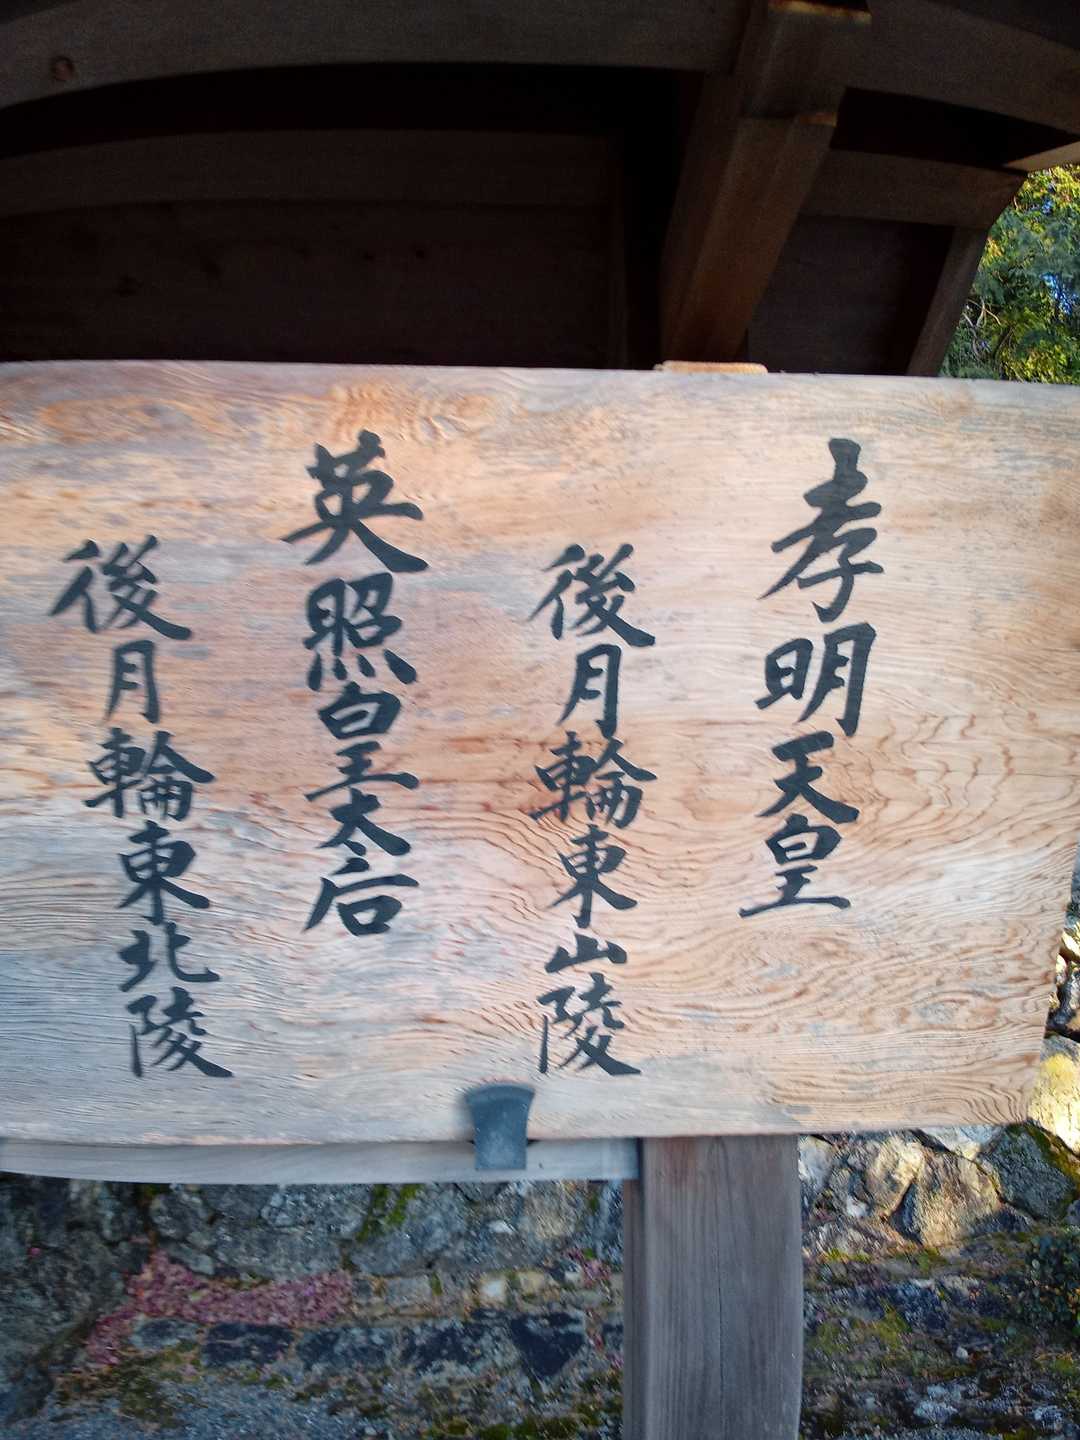 孝明天皇
後月輪東山陵
英照皇太后
後月輪東北陵